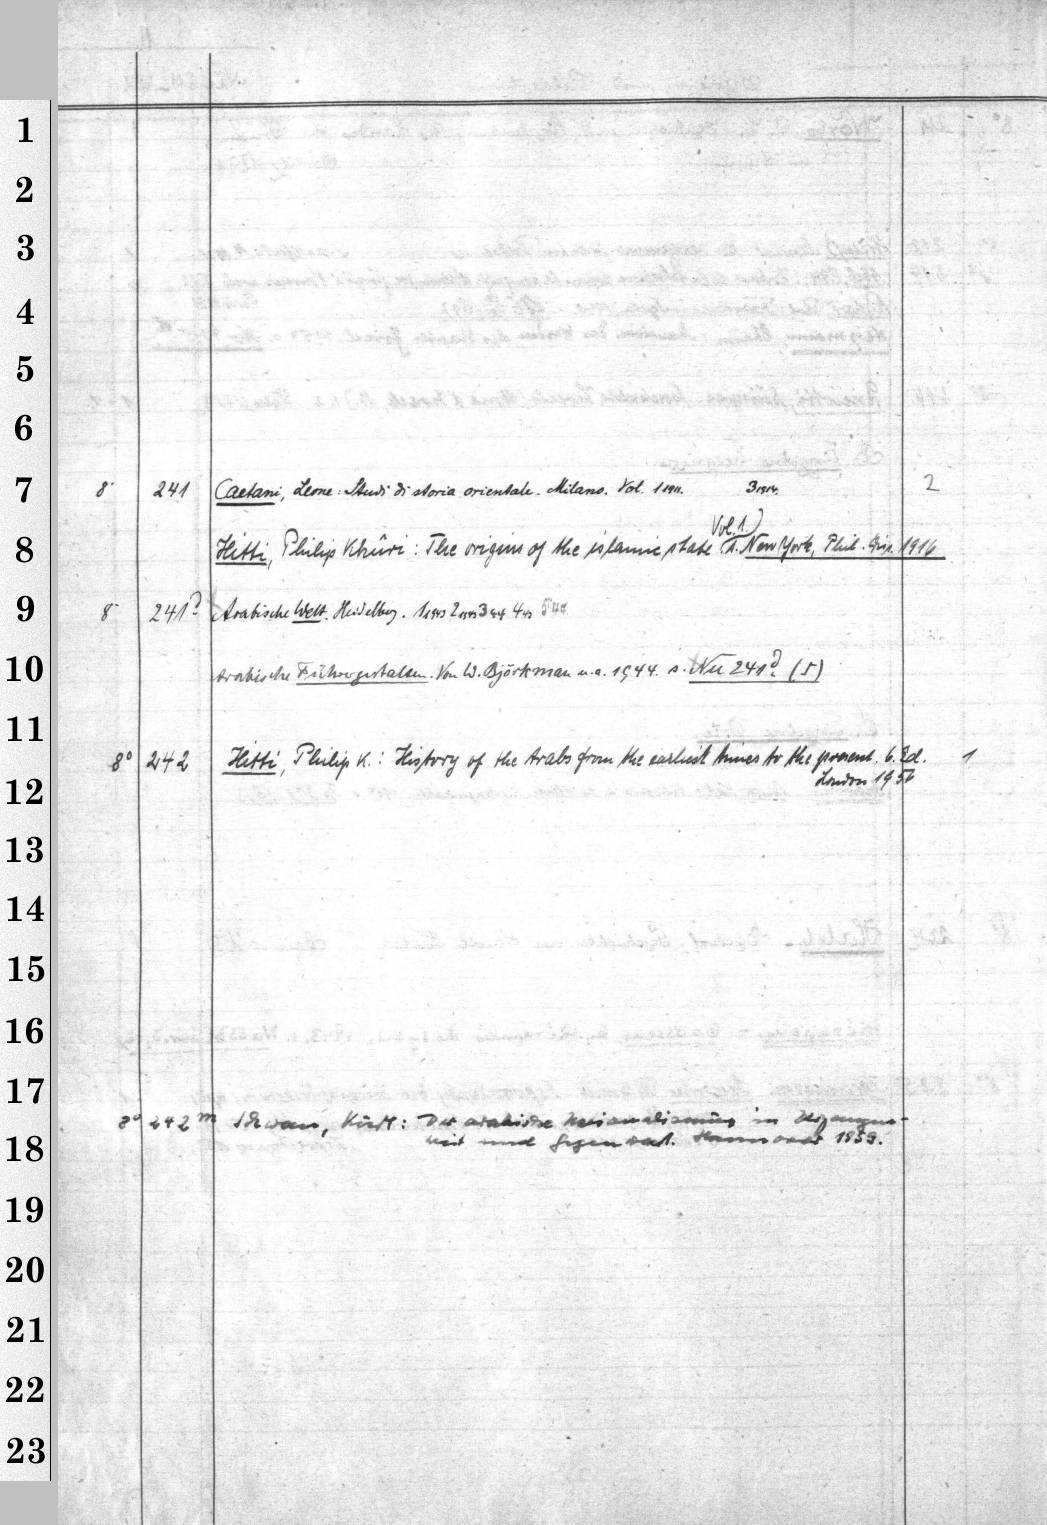 1
2
3
4
5
6
7 8° 241 Caetani, Leone: Studi di storia orientale. Milano. Vol. 1 1911. 3 1914. 2
8 Hitti, Philip Khûri: The origins of the islamic state (Vol. 1.) s. New York, 1916
9 8° 241 Arabische Welt. Heidelberg. 1 2 3 4 5
10 Arabische Führergestalten. Von W. Björkman u.a. 1944. s. Nu 241 (5)
11
8° 242 Hitti, Philip K.: History of the Arabs from the earliest times to the present. 6. Ed. 1
12 London 1956
13
14
15
16
17
8° 242 m Schwan, Kurt: Der arabische Nationalismus in Vergangen-
18 heit und Gegenwart. Hannover 1959.
19
20
21
22
23